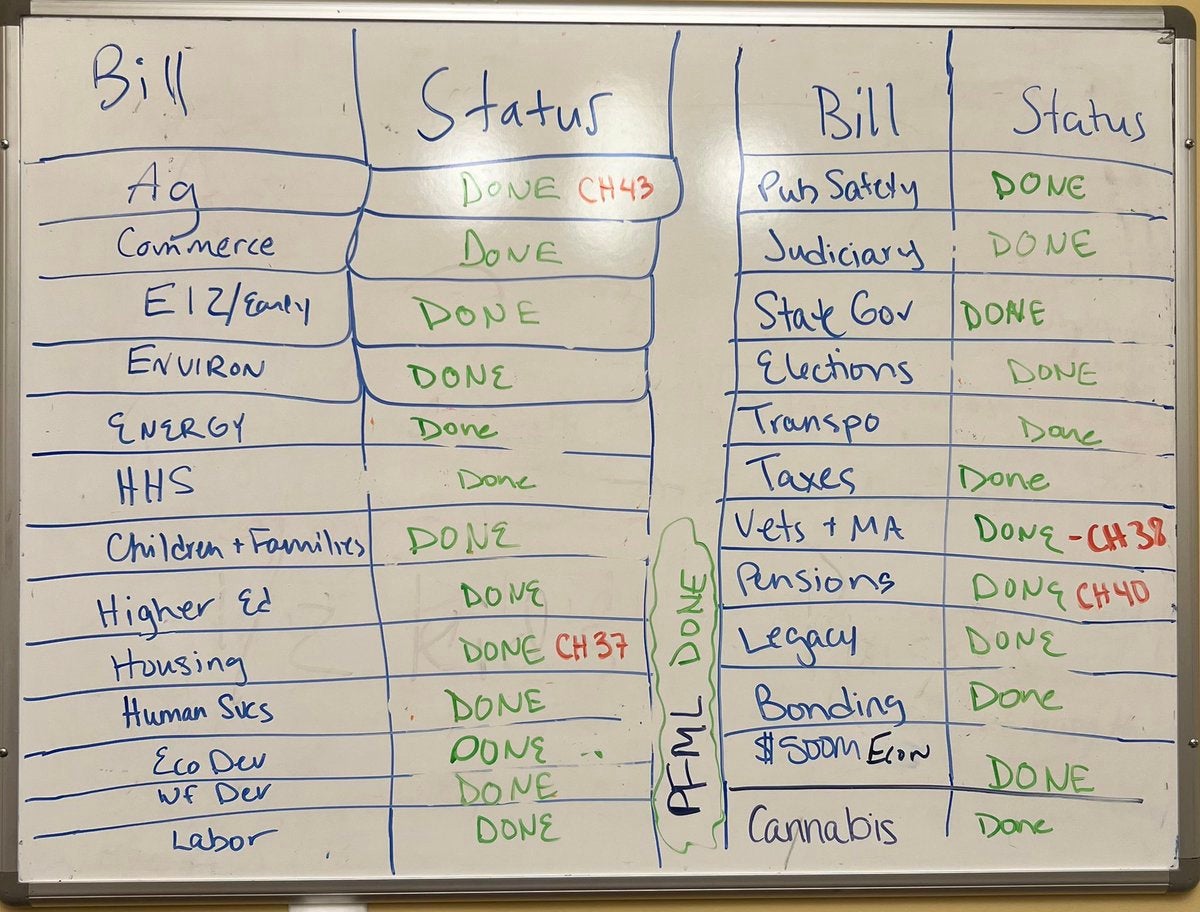 Bill Status
Ag DONE CH43
Commerce DONE
E12/Early DONE
ENVIRON DONE
ENERGY Done
HHS Done
Children + Families DONE
Higher Ed DONE
Housing DONE CH37
Human Svcs DONE
Eco Dev DONE
WF Dev DONE
Labor DONE
PFML DONE
Bill Status
Pub Safety DONE
Judiciary DONE
State Gov DONE
Elections DONE
Transpo Done
Taxes Done
Vets + MA DONE - CH38
Pensions DONE CH40
Legacy DONE
Bonding Done
$500M Econ DONE
Cannabis Done